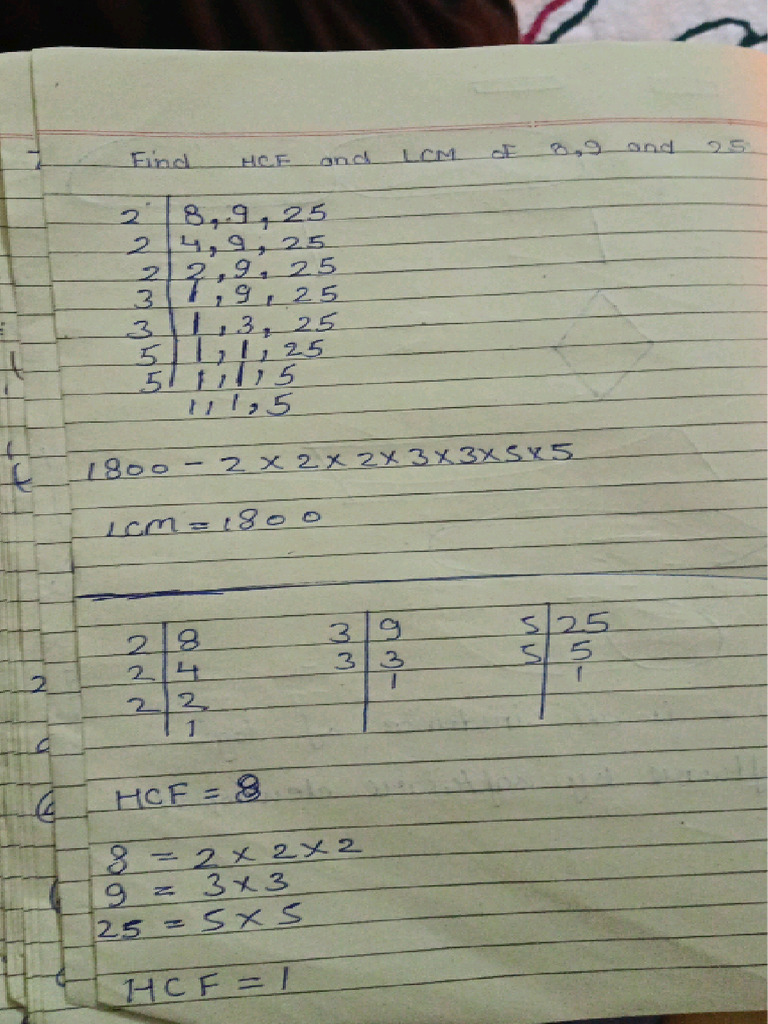 Find HCF and LCM of 8,9 and 25
2 | 8, 9, 25
2 | 4, 9, 25
2 | 2, 9, 25
3 | 1, 9, 25
3 | 1, 3, 25
5 | 1, 1, 25
5 | 1, 1, 5
1, 1, 5
1800 - 2 × 2 × 2 × 3 × 3 × 5 × 5
LCM = 1800
2 | 8 3 | 9 5 | 25
2 | 4 3 | 3 5 | 5
2 | 2 | 1 | 1
| 1
HCF = 8
8 = 2 × 2 × 2
9 = 3 × 3
25 = 5 × 5
HCF = 1